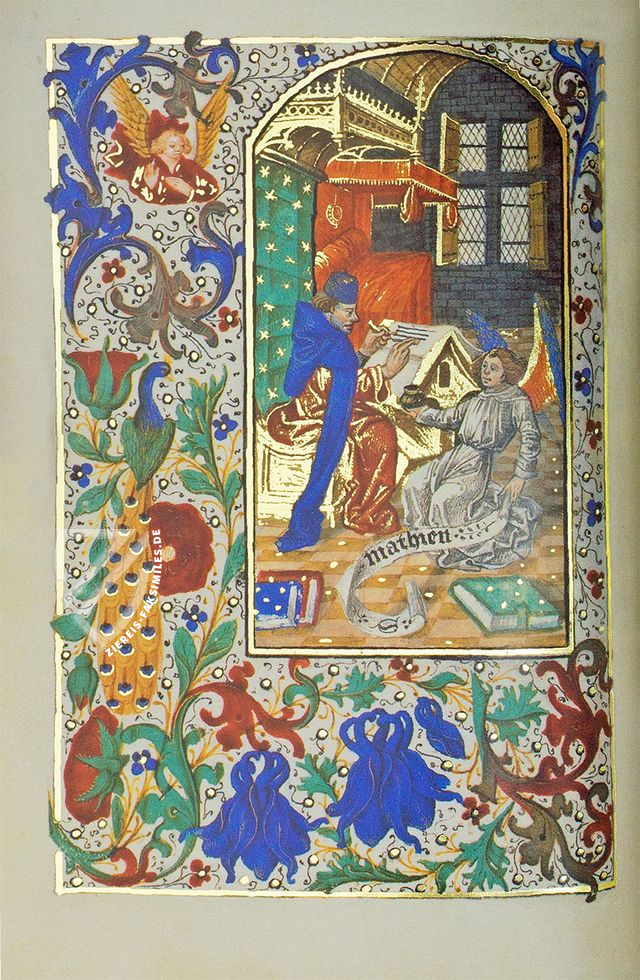 mathieu
ZIEREIS-FACSIMILES.DE